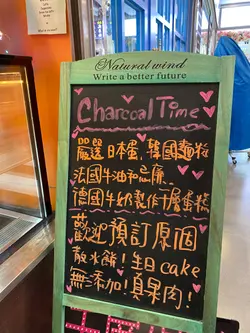 Natural wind
Write a better future
Charcoal Time
嚴選日本蛋,韓國麵粉
法國牛油和忌廉
德國牛奶製作千層蛋糕
歡迎預訂原個
散水餅!生日cake
無添加!真果肉!